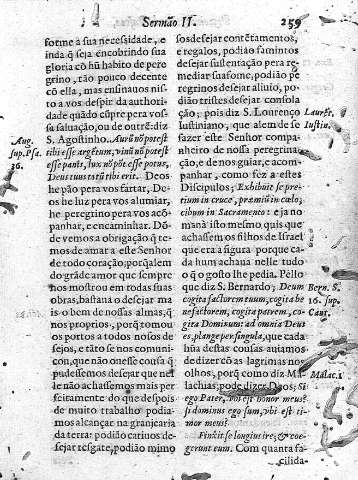 Sermão II. 259
forme a sua necessidade, e
inda q̃ seja encobrindo sua
gloria cõ hũ habito de pere
grino, tão pouco decente
cõ ella, mas ensinauos nis
to a vos despir da authori-
dade quãdo cũpre pera vos-
sa saluação, ou de outrẽ: diz
S. Agostinho. Aurũ nõ potest
tibi esse argẽtum, vinũ nõ potest
esse panis, lux nõ põt esse potus,
Deus tuus totũ tibi erit. Deos
he pão pera vos fartar, De-
os he luz pera vos alumiar,
he peregrino pera vos acõ-
panhar, e encaminhar. Dõ-
de vemos a obrigação q̃ te-
mos de amar a este Senhor
de todo coração, porq̃ alem
do grãde amor que sempre
nos mostrou em todas suas
obras, bastaua o desejar ma
is o bem de nossas almas, q̃
nos proprios, porq̃ tomou
os portos a todos nossos de-
sejos, e tãto se nos comuni-
cou, que não onesse cousa q̃
pudessemos desejar que nel
le não achassemos mais per
feitamente do que despois
de muito trabalho podia-
mos alcançar na grangearia
da terra: podião catiuos de-
sejar resgate, podião mimo
Aug.
sup. Psa.
36.
sos desejar contẽtamentos,
e regalos, podião famintos
desejar sustentação pera re-
mediar sua fome, podião pe
regrinos desejar aliuio, po-
dião tristes desejar consola
ção; pois diz S. Lourenço
Iustiniano; que alem de se
fazer este Senhor compa-
nheiro de nossa peregrina-
ção, e de nos guiar, e acom-
panhar, como fez a estes
Discipulos; Exhibuit se pre-
tium in cruce, præmiũ in cælo,
cibum in Sacramento: e ja no
manà isto mesmo quis que
achassem os filhos de Israel
que era a figura porque ca-
da hum achaua nelle tudo
o q̃ o gosto lhe pedia. Pello
que diz S. Bernardo; Deum
cogita factorem tuum, cogita be
nefactorem, cogita patrem, co-
gita Dominum: ad omnia Deus
es, plange per singula, que cada
hũa destas cousas auiamos
de dizer cõ as lagrimas nos
olhos, porq̃ como diz Ma-
lachias; pode dizer Deos; Si
ego Pater, vbi est honor meus?
si dominus ego sum, vbi est ti-
mor meus?
Finxit se longius ire; & co-
egerunt eum. Com quanta fa-
cilida-
Laurẽt.
Iustin.
Bern. S.
16. sup.
Cant.
Malac. 1